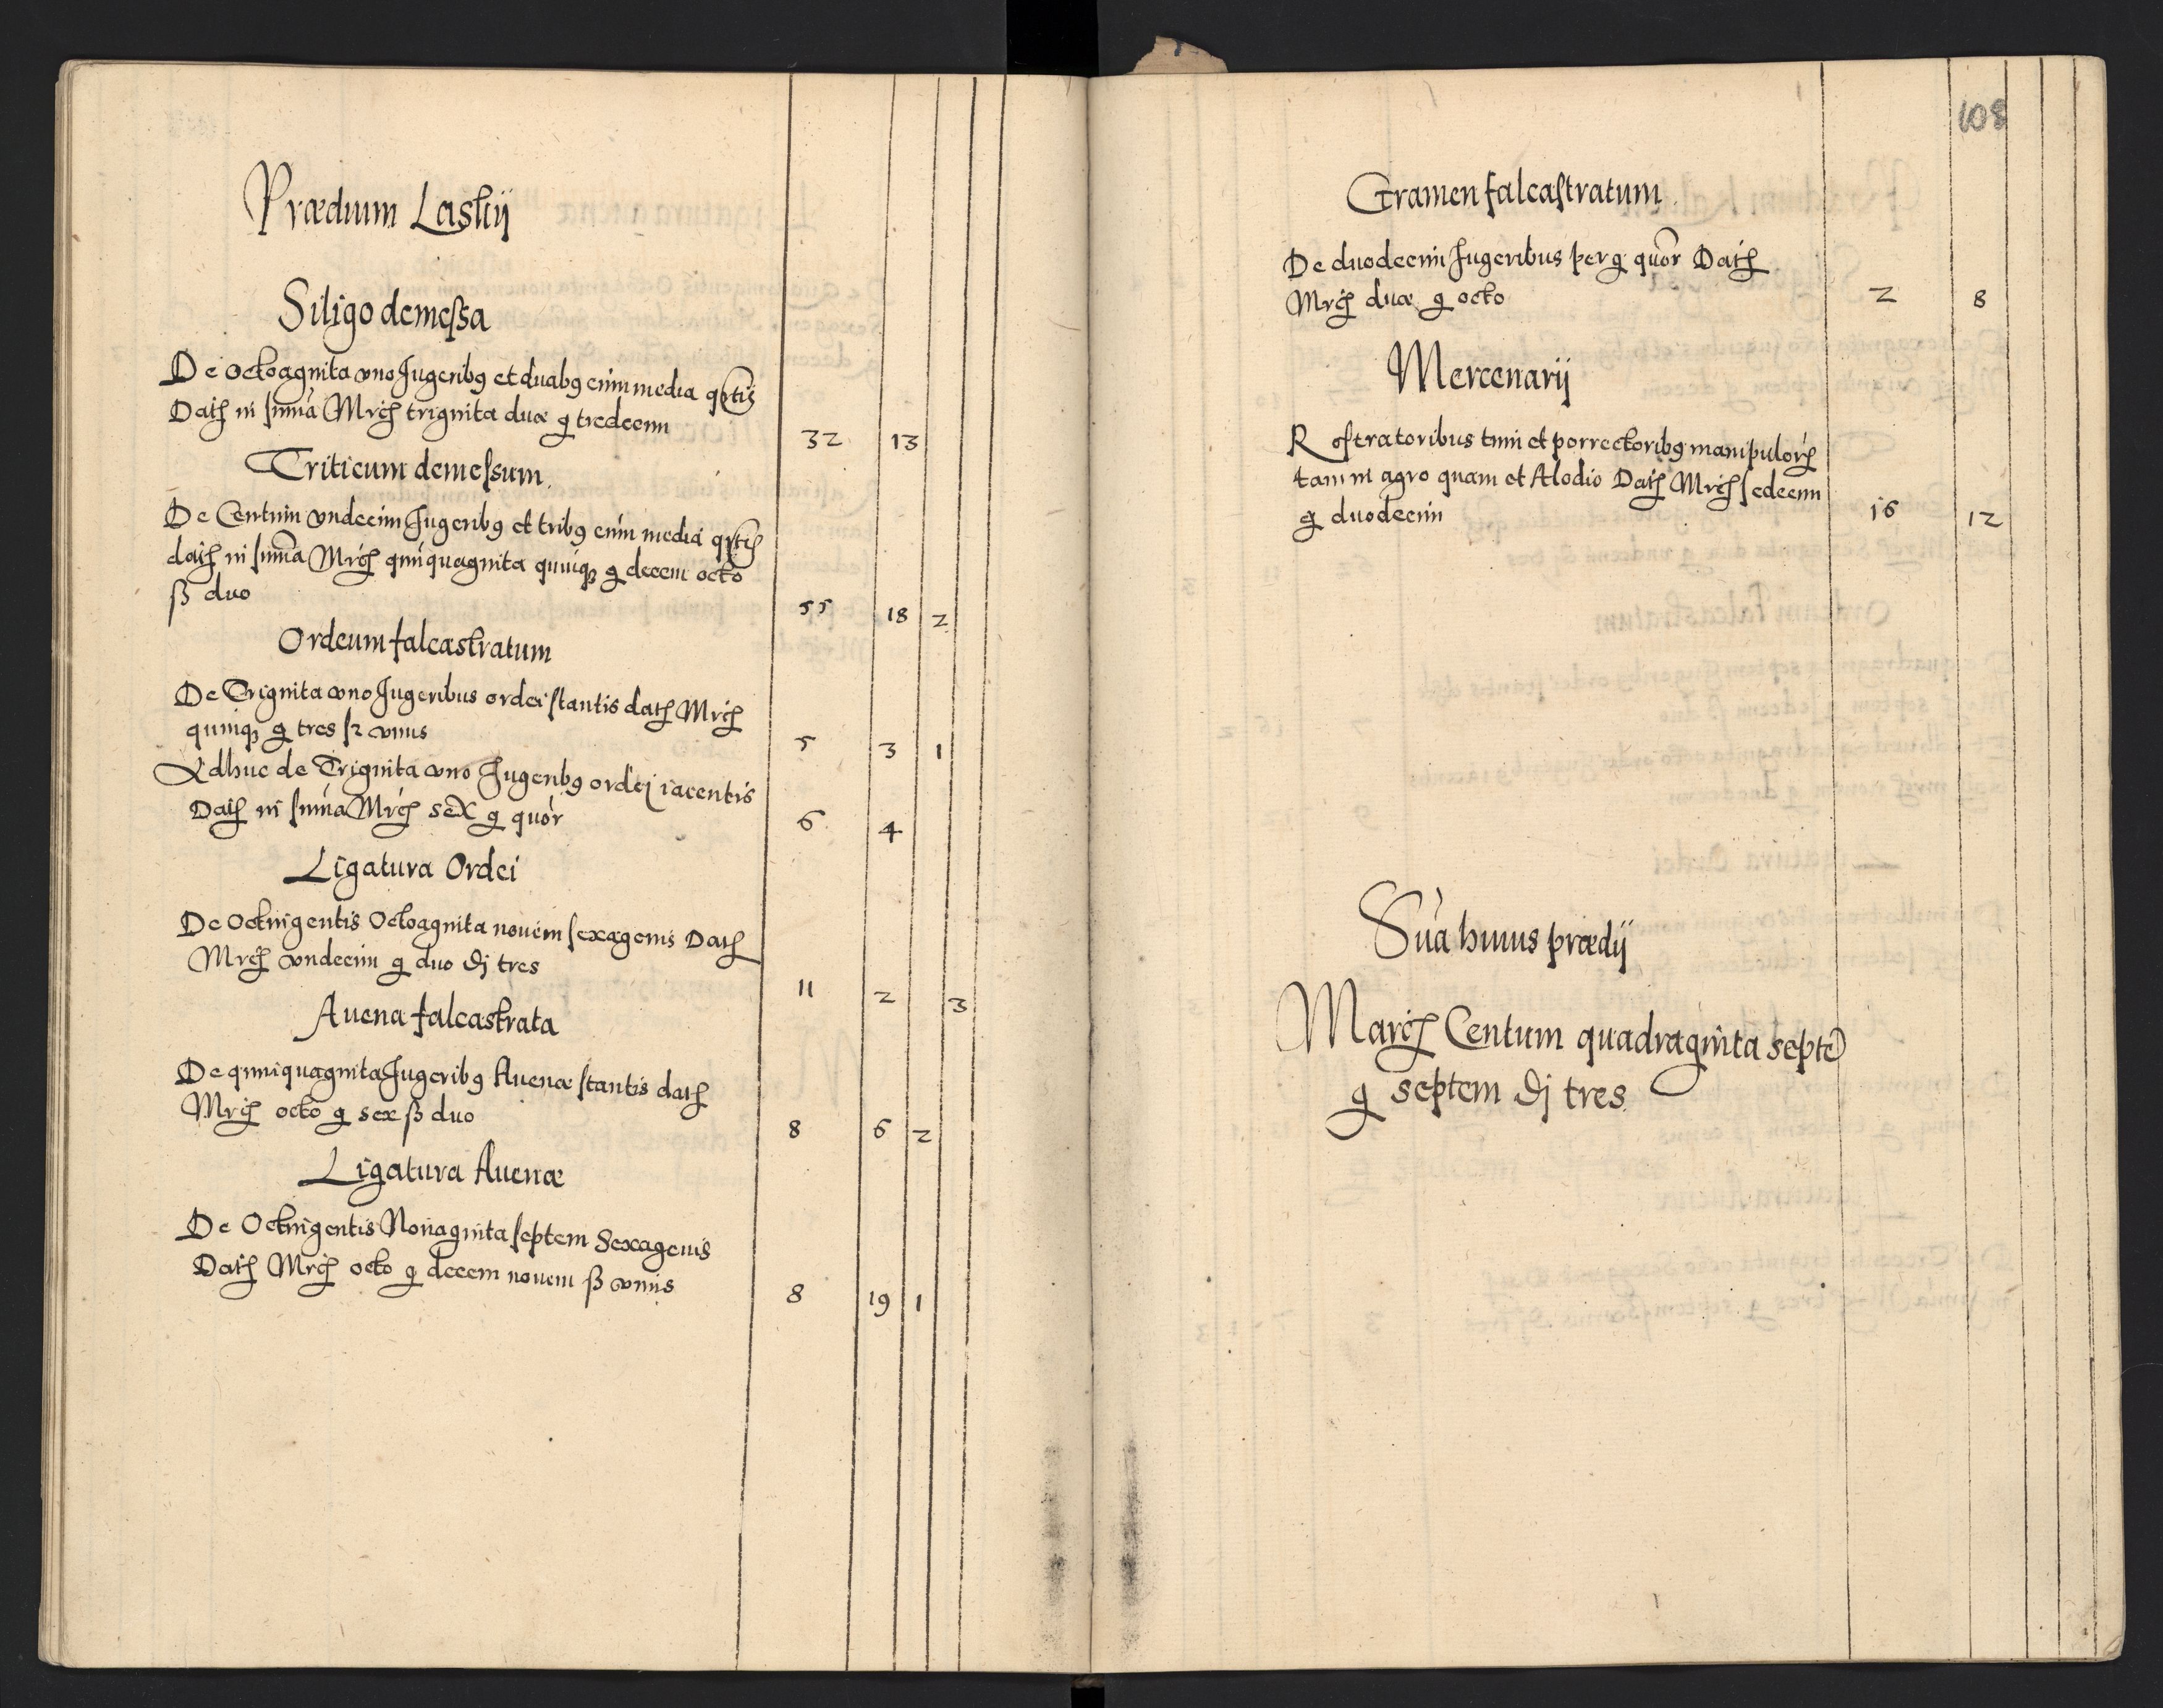 Prædium Laskij
Siligo demeßa
De Octoaginta vno Jugeribꝫ et duabꝫ cum media qrtis
Datꝭ in sum̄a Mrcꝭ triginta duæ g tredecim
32 13
Triticum demessum.
De Centum vndecim Jugeribꝫ et tribꝫ cum media qrtis
datꝭ in sum̄a Mrcꝭ quinquaginta quinqꝫ g decem octo
ß duo
55 18 2
Ordeum falcastratum
De Triginta vno Jugeribus ordei stantis datꝭ Mrcꝭ
quinqꝫ g tres ß vnus
5 3 1
Adhuc de Triginta vno Jugeribꝫ ordei iacentis
Datꝭ in sum̄a Mrcꝭ sex g quor
6 4
Ligatura Ordei
De Octingentis Octoaginta nouem sexagenis Datꝭ
Mrcꝭ vndecim g duo dj tres
11 2 3
Auena falcastrata
De quinquaginta Jugeribꝫ Auenæ stantis datꝭ
Mrcꝭ octo g sex ß duo
8 6 2
Ligatura Auenæ
De Octingentis Nonaginta septem Sexagenis
Datꝭ Mrcꝭ octo g decem nouem ß vnus
8 19 1
108
Gramen falcastratum.
De duodecim Jugeribus per g quor Datꝭ
Mrcꝭ duæ g octo
2 8
Mercenarij
Rostratoribus tum et porrectoribꝫ manipulorꝭ
tam in agro quam et Alodio Datꝭ Mrcꝭ sedecim
g duodecim
16 12
Sūa huius prædij
Marcꝭ Centum quadraginta septē
g septem dj tres.